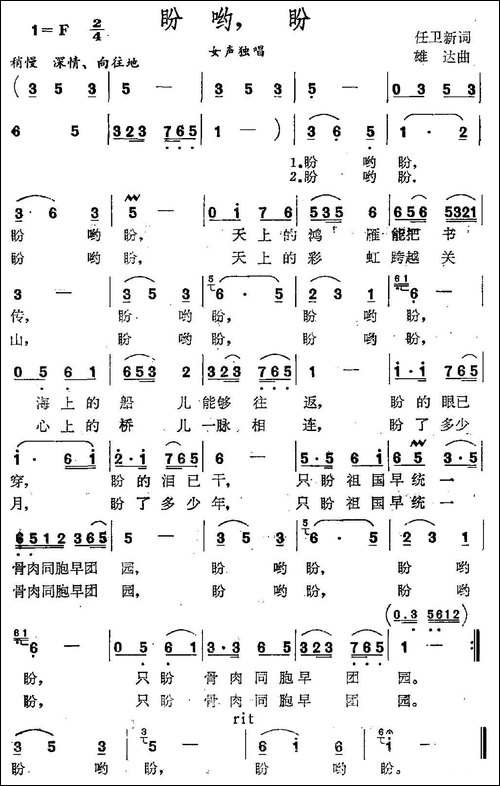 盼哟，盼
1=F 2/4
任卫新词
女声独唱
稍慢 深情、向往地
雄达曲
( 3 5 3 | 5 — | 3 5 3 | 5 — | 0 3 5 3 |
6 5 | 323 765 | 1 — ) | 3 6 5 | 1 · 2 |
1.盼 哟 盼，
2.盼 哟 盼.
3 · 6 3 | 5 — | 0 i 7 6 | 535 6 | 656 5321 |
盼 哟 盼， 天上的 鸿 雁 能把 书
盼 哟 盼， 天上的 彩 虹 跨越 关
3 — | 3 5 3 | 6 · 5 | 2 3 1 | 6 — |
传， 盼 哟 盼， 盼 哟 盼，
山， 盼 哟 盼， 盼 哟 盼，
0 5 6 1 | 653 2 | 323 765 | 1 — | i · i 765 |
海上的 船 儿 能够 往 返， 盼 的 眼已
心上的 桥 儿 一脉 相 连， 盼 了 多少
i · 6 i | 2 · i 765 | 3 — | 5 · 5 6 i | 6 5 3 · 5 |
穿， 盼 的 泪已 干， 只盼祖国 早统一
月， 盼 了 多少 年， 只盼祖国 早统一
6512 365 | 5 — | 3 5 3 | 6 · 5 | 2 3 1 |
骨肉同胞早团 园， 盼 哟 盼， 盼 哟
骨肉同胞早团 园， 盼 哟 盼， 盼 哟
(0.3 5612)
6 — | 0 5 6 1 | 3 · 3 6 5 | 323 765 | 1 — :||
盼， 只盼 骨肉同胞早 团 园。
盼， 只盼 骨肉同胞早 团 园。
rit
3 5 3 | 5 — | 6 i | i — ||
盼 哟 盼， 盼 哟 盼。